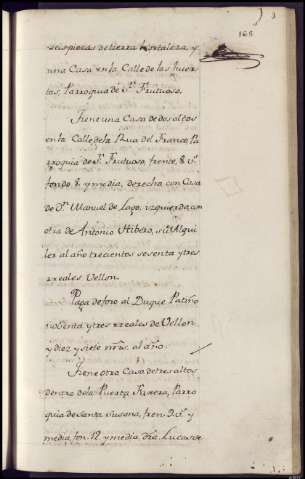 168
seis piezas de tierra hortaleza, y
una Casa en la Calle de las huer-
tas, Parroquia de Sn. Fructuoso.
Tiene una Casa de dos altos
en la Calle de la Rua del Franco, Pa
rroquia de Sn. Fructuoso, frente, 8. Y
fondo, 8. y media, derecha con Casa
de Dn. Manuel de Lago, izquierda con
otra de Antonio Ribero, su Alqui
ler al año trecientos sesenta y tres
reales Vellon.
Paga de foro al Duque Patiño
noventa y tres reales de Vellon
y diez y siete mrs. al año.
Tiene otra Casa de tres altos
dentro de la Puerta Faxera, Parro
quia de santa Susana, fren. 9. y
media, fon. 12. y media, dra. Lucas de